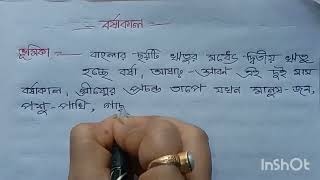 বর্ষাকাল
ভূমিকা :— বাংলার ছয়টি ঋতুর মধ্যে দ্বিতীয় ঋতু
হচ্ছে বর্ষা, আষাঢ়-শ্রাবণ এই দুই মাস
বর্ষাকাল, গ্রীষ্মের প্রচন্ড তাপে যখন মানুষ-জন,
পশু-পাখি, গাছ
InShOt